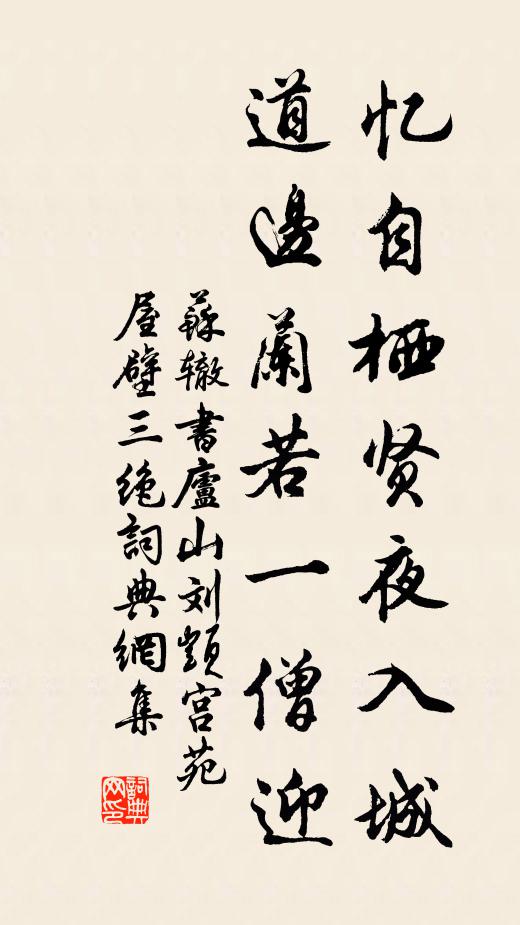 忆自栖贤夜入城
道邊蘭若一僧迎
蘇辙書廬山刘顗宫苑
屋壁三绝詞典網集
詞典
网印